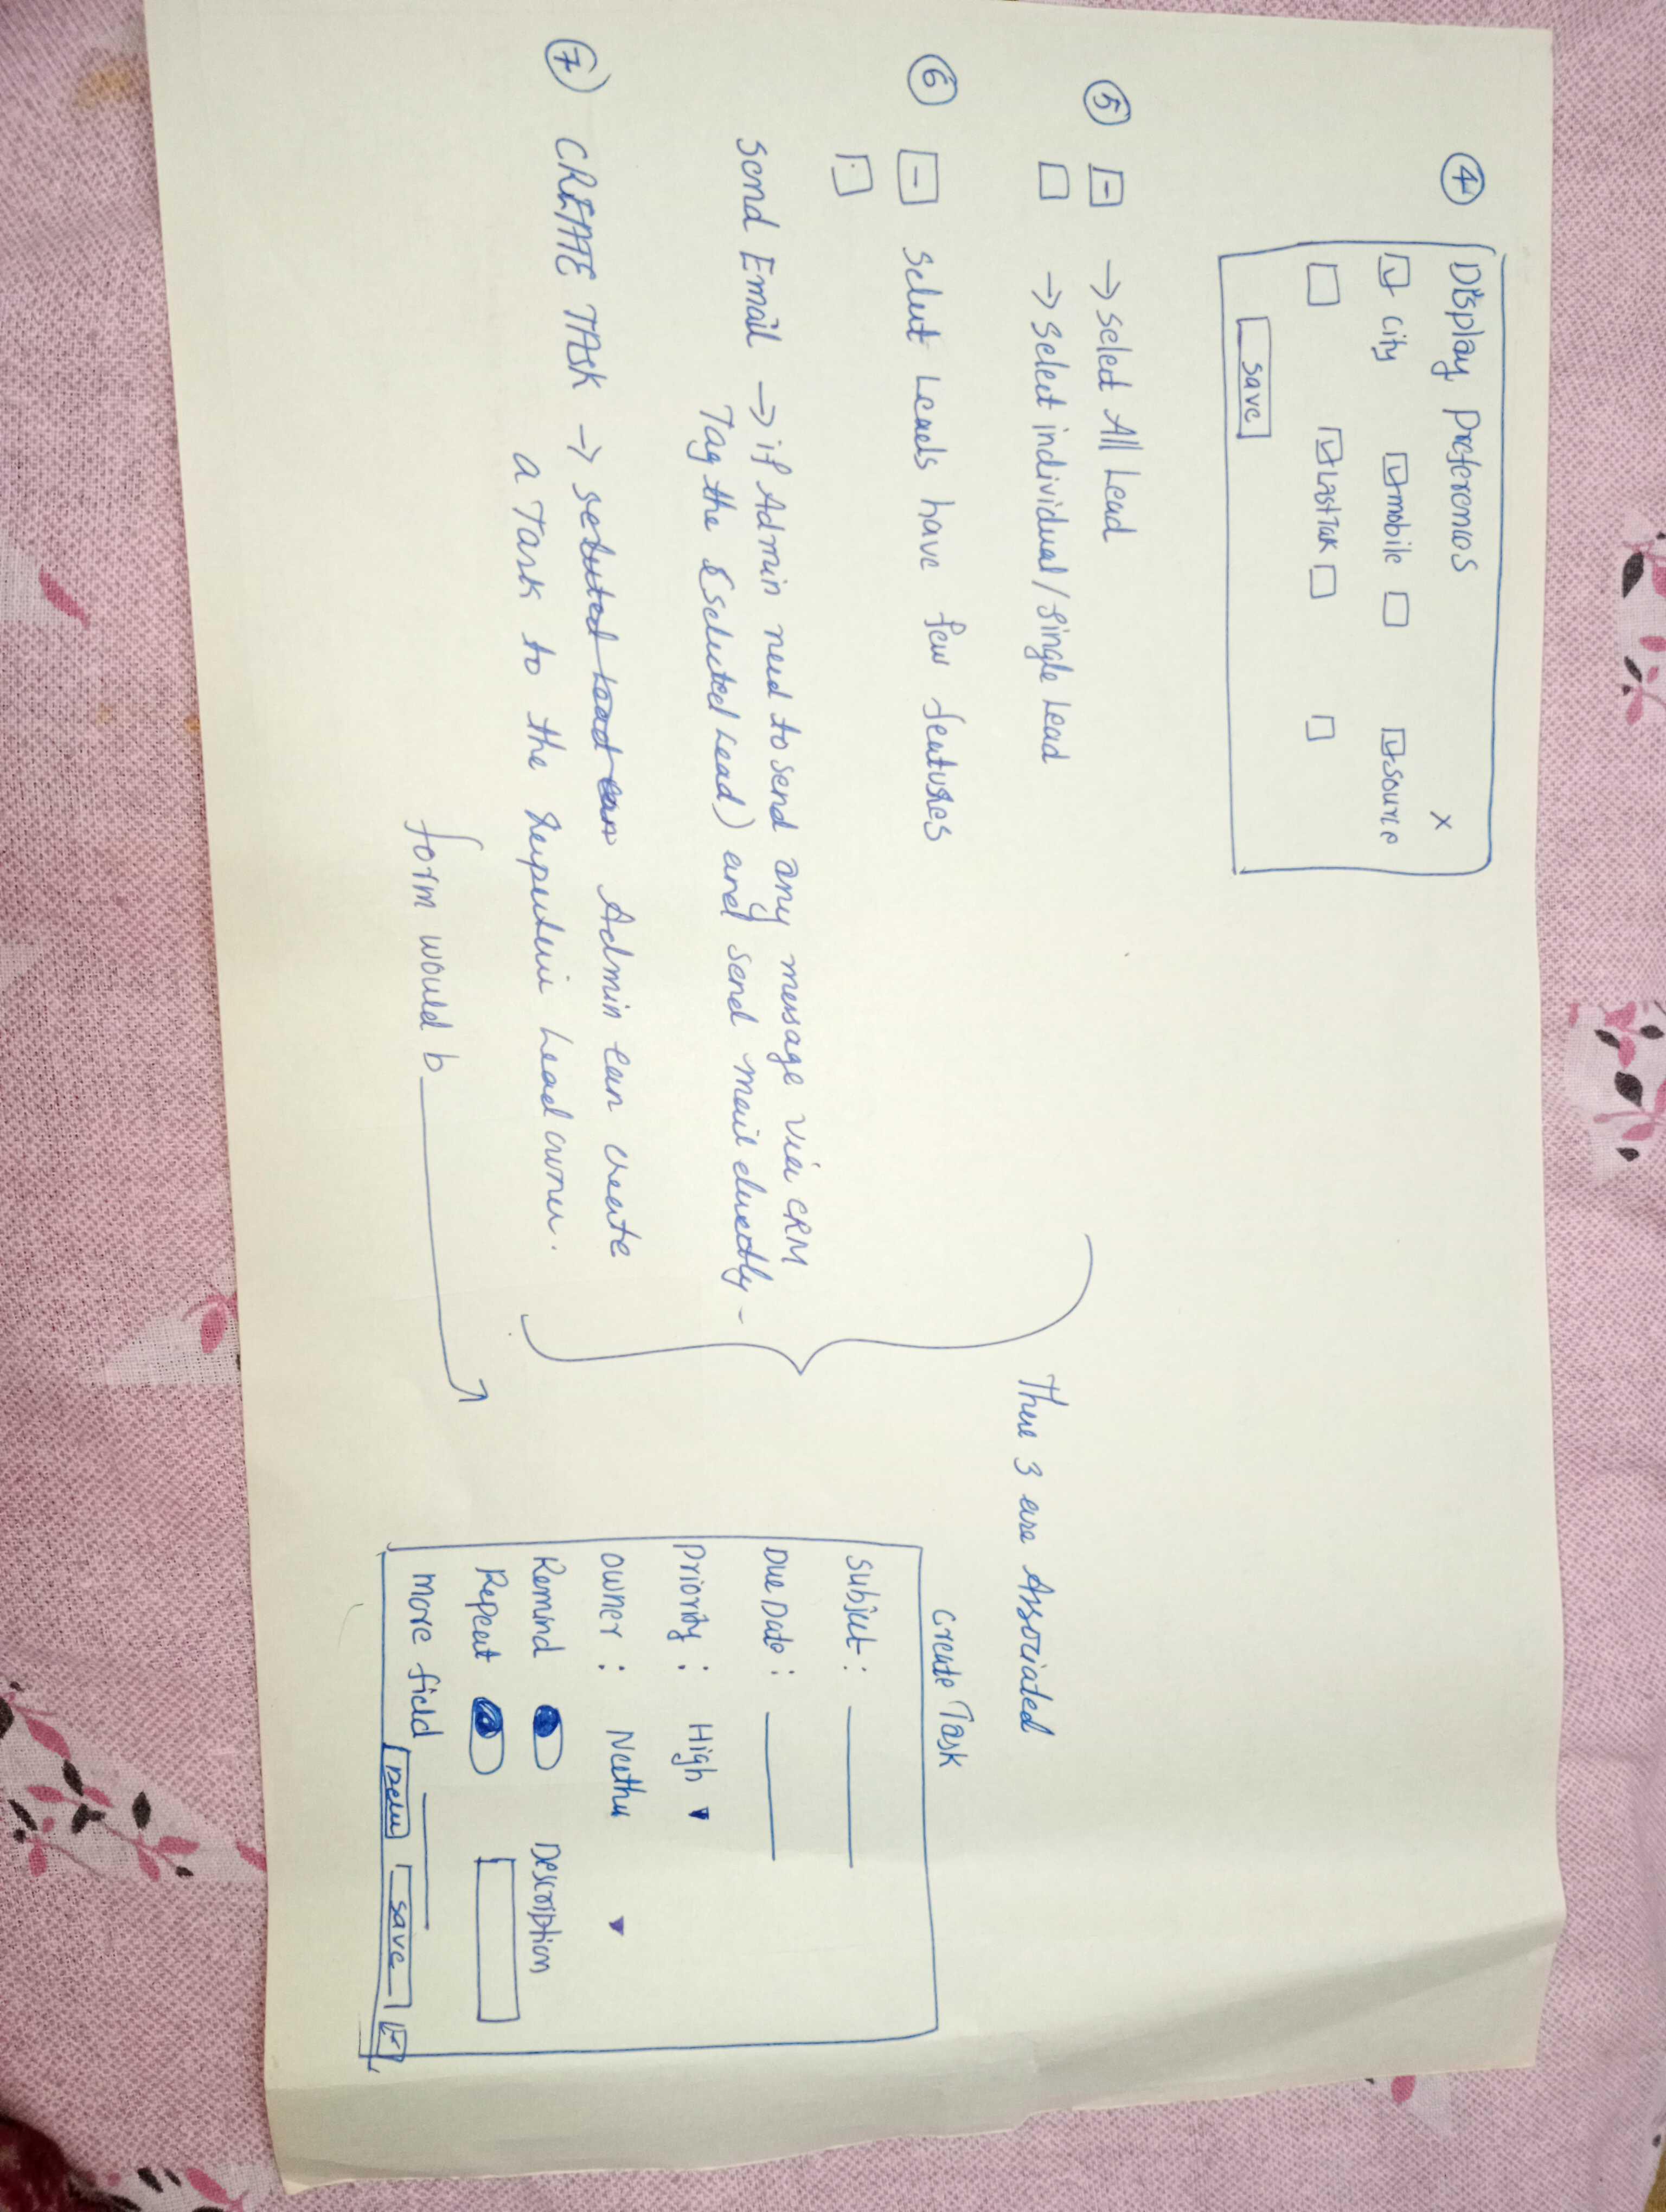 ④ Display Preferences X
city mobile source
LastTak
save
⑤ - → select All Lead
→ select individual / single Lead
⑥ - select Leads have few features
Send Email → if Admin need to send any message via CRM
Tag the (selected Lead) and send mail directly -
⑦ CREATE TASK → selected Lead can Admin can create
a Task to the Lead owner.
form would b
There 3 are Associated
Create Task
Subject :
Due Date :
Priority : High
owner : Neethu
Remind Description
Repeat
more field
save